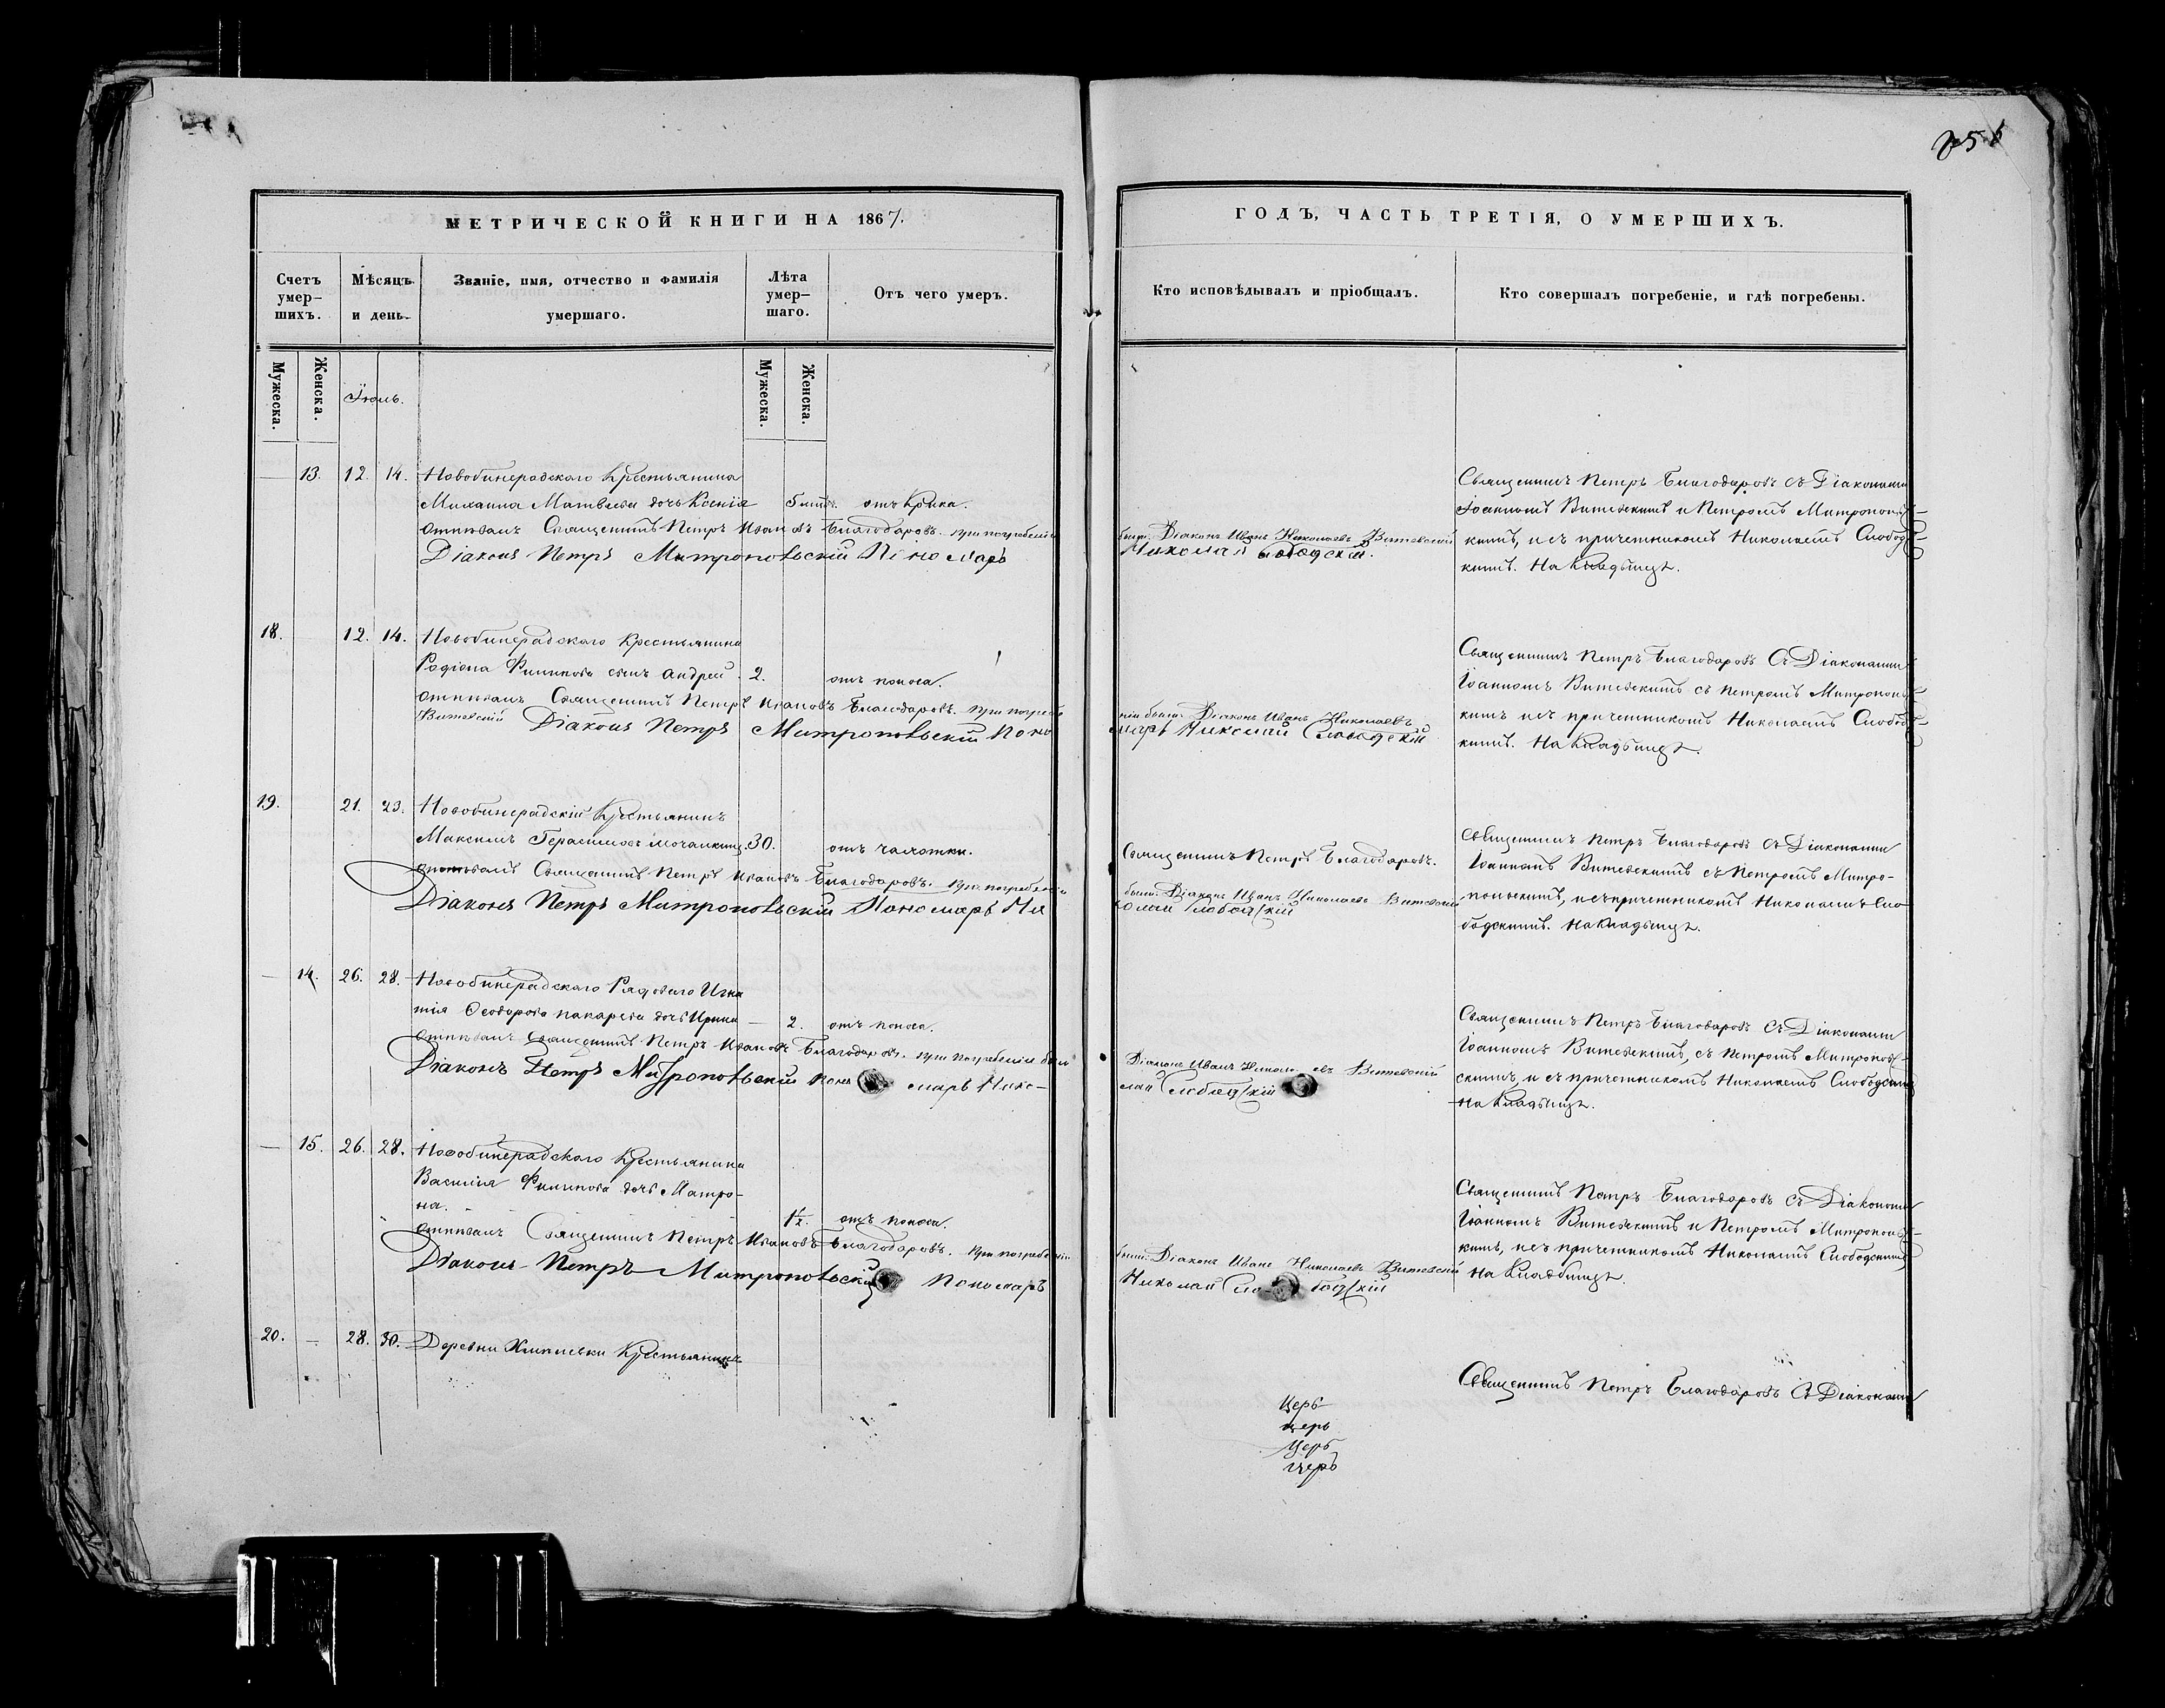 МЕТРИЧЕСКОЙ КНИГИ НА 1867.
Счетъ умер-шихъ.
Мѣсяцъ и день.
Званіе, имя, отчество и фамилія умершаго.
Лѣта умер-шаго.
Отъ чего умеръ.
Мужеска.
Женска.
Іюль.
Мужеска.
Женска.
13. 12. 14. Новобинерадскаго Крестьянина
Михаила Матвѣева дочь Ксенія 5 отъ Крика.
отпѣвалъ Священникъ Петръ Ивановъ Благодаровъ. при погребеніи
Діаконъ Петръ Митропольскій Пономарь
18. 12. 14. Новобинерадскаго Крестьянина
Родіона Филипова сынъ Андрей. 2. отъ поноса.
отпѣвалъ Священникъ Петръ Ивановъ Благодаровъ. при погребе
Витевскій Діаконъ Петръ Митропольскій Поно
19. 21. 23. Новобинерадскій Крестьянинъ
Максимъ Герасимовъ 30. отъ чахотки.
отпѣвалъ Священникъ Петръ Ивановъ Благодаровъ. при погребеніи
Діаконъ Петръ Митропольскій Пономарь Ни
14. 26. 28. Новобинерадскаго Рядоваго Игна
тія Ѳеодорова дочь Ирина 2. отъ поноса.
отпѣвалъ Священникъ Петръ Ивановъ Благодаровъ. при погребеніи были
Діаконъ Петръ Митропольскій Поно марь Нико-
15. 26. 28. Новобинерадскаго Крестьянина
Василія Филипова дочь Матро-
на. 1½. отъ поноса.
отпѣвалъ Священникъ Петръ Ивановъ Благодаровъ. при погребеніи
Діаконъ Петръ Митропольскій Пономарь
20. 28. 30. Деревни Крестьянинъ
ГОДЪ, ЧАСТЬ ТРЕТІЯ, О УМЕРШИХЪ.
Кто исповѣдывалъ и пріобщалъ.
Кто совершалъ погребеніе, и гдѣ погребены.
были Діаконъ Иванъ Николаевъ Витевскій
Николай Слободскій.
Священникъ Петръ Благодаровъ съ Діаконами
Іоанномъ Витевскимъ и Петромъ Митрополь-
кимъ, и съ причетникомъ Николаемъ Слободс-
кимъ. На Кладбищѣ.
ніи были. Діаконъ Иванъ Николаевъ
марь Николай Слободскій
Священникъ Петръ Благодаровъ Съ Діаконами
Іоанномъ Витевскимъ съ Петромъ Митрополь-
кимъ и съ причетникомъ Николаемъ Слободс-
кимъ. На Кладбищѣ.
Священникъ Петръ Благодаровъ.
были. Діаконъ Иванъ Николаевъ Витевскій
колай Слободскій
Священникъ Петръ Благодаровъ Съ Діаконами
Іоанномъ Витевскимъ съ Петромъ Митро-
польскимъ, и съ причетникомъ Николаемъ Сло
бодскимъ. На Кладбищѣ.
Діаконъ Иванъ Николаевъ Витевскій
лай Слободскій
Священникъ Петръ Благодаровъ Съ Діаконами
Іоанномъ Витевскимъ, съ Петромъ Митрополь-
скимъ, и съ причетникомъ Николаемъ Слободским
На Кладбищѣ.
были. Діаконъ Иванъ Николаевъ Витевскій
Николай Сло- бодскій
Священникъ Петръ Благодаровъ съ Діаконами
Іоанномъ Витевскимъ и Петромъ Митрополь-
кимъ, и съ причетникомъ Николаемъ Слободским
На Кладбищѣ.
Священникъ Петръ Благодаровъ Съ Діаконами
Церь
церь
Церь
Церь